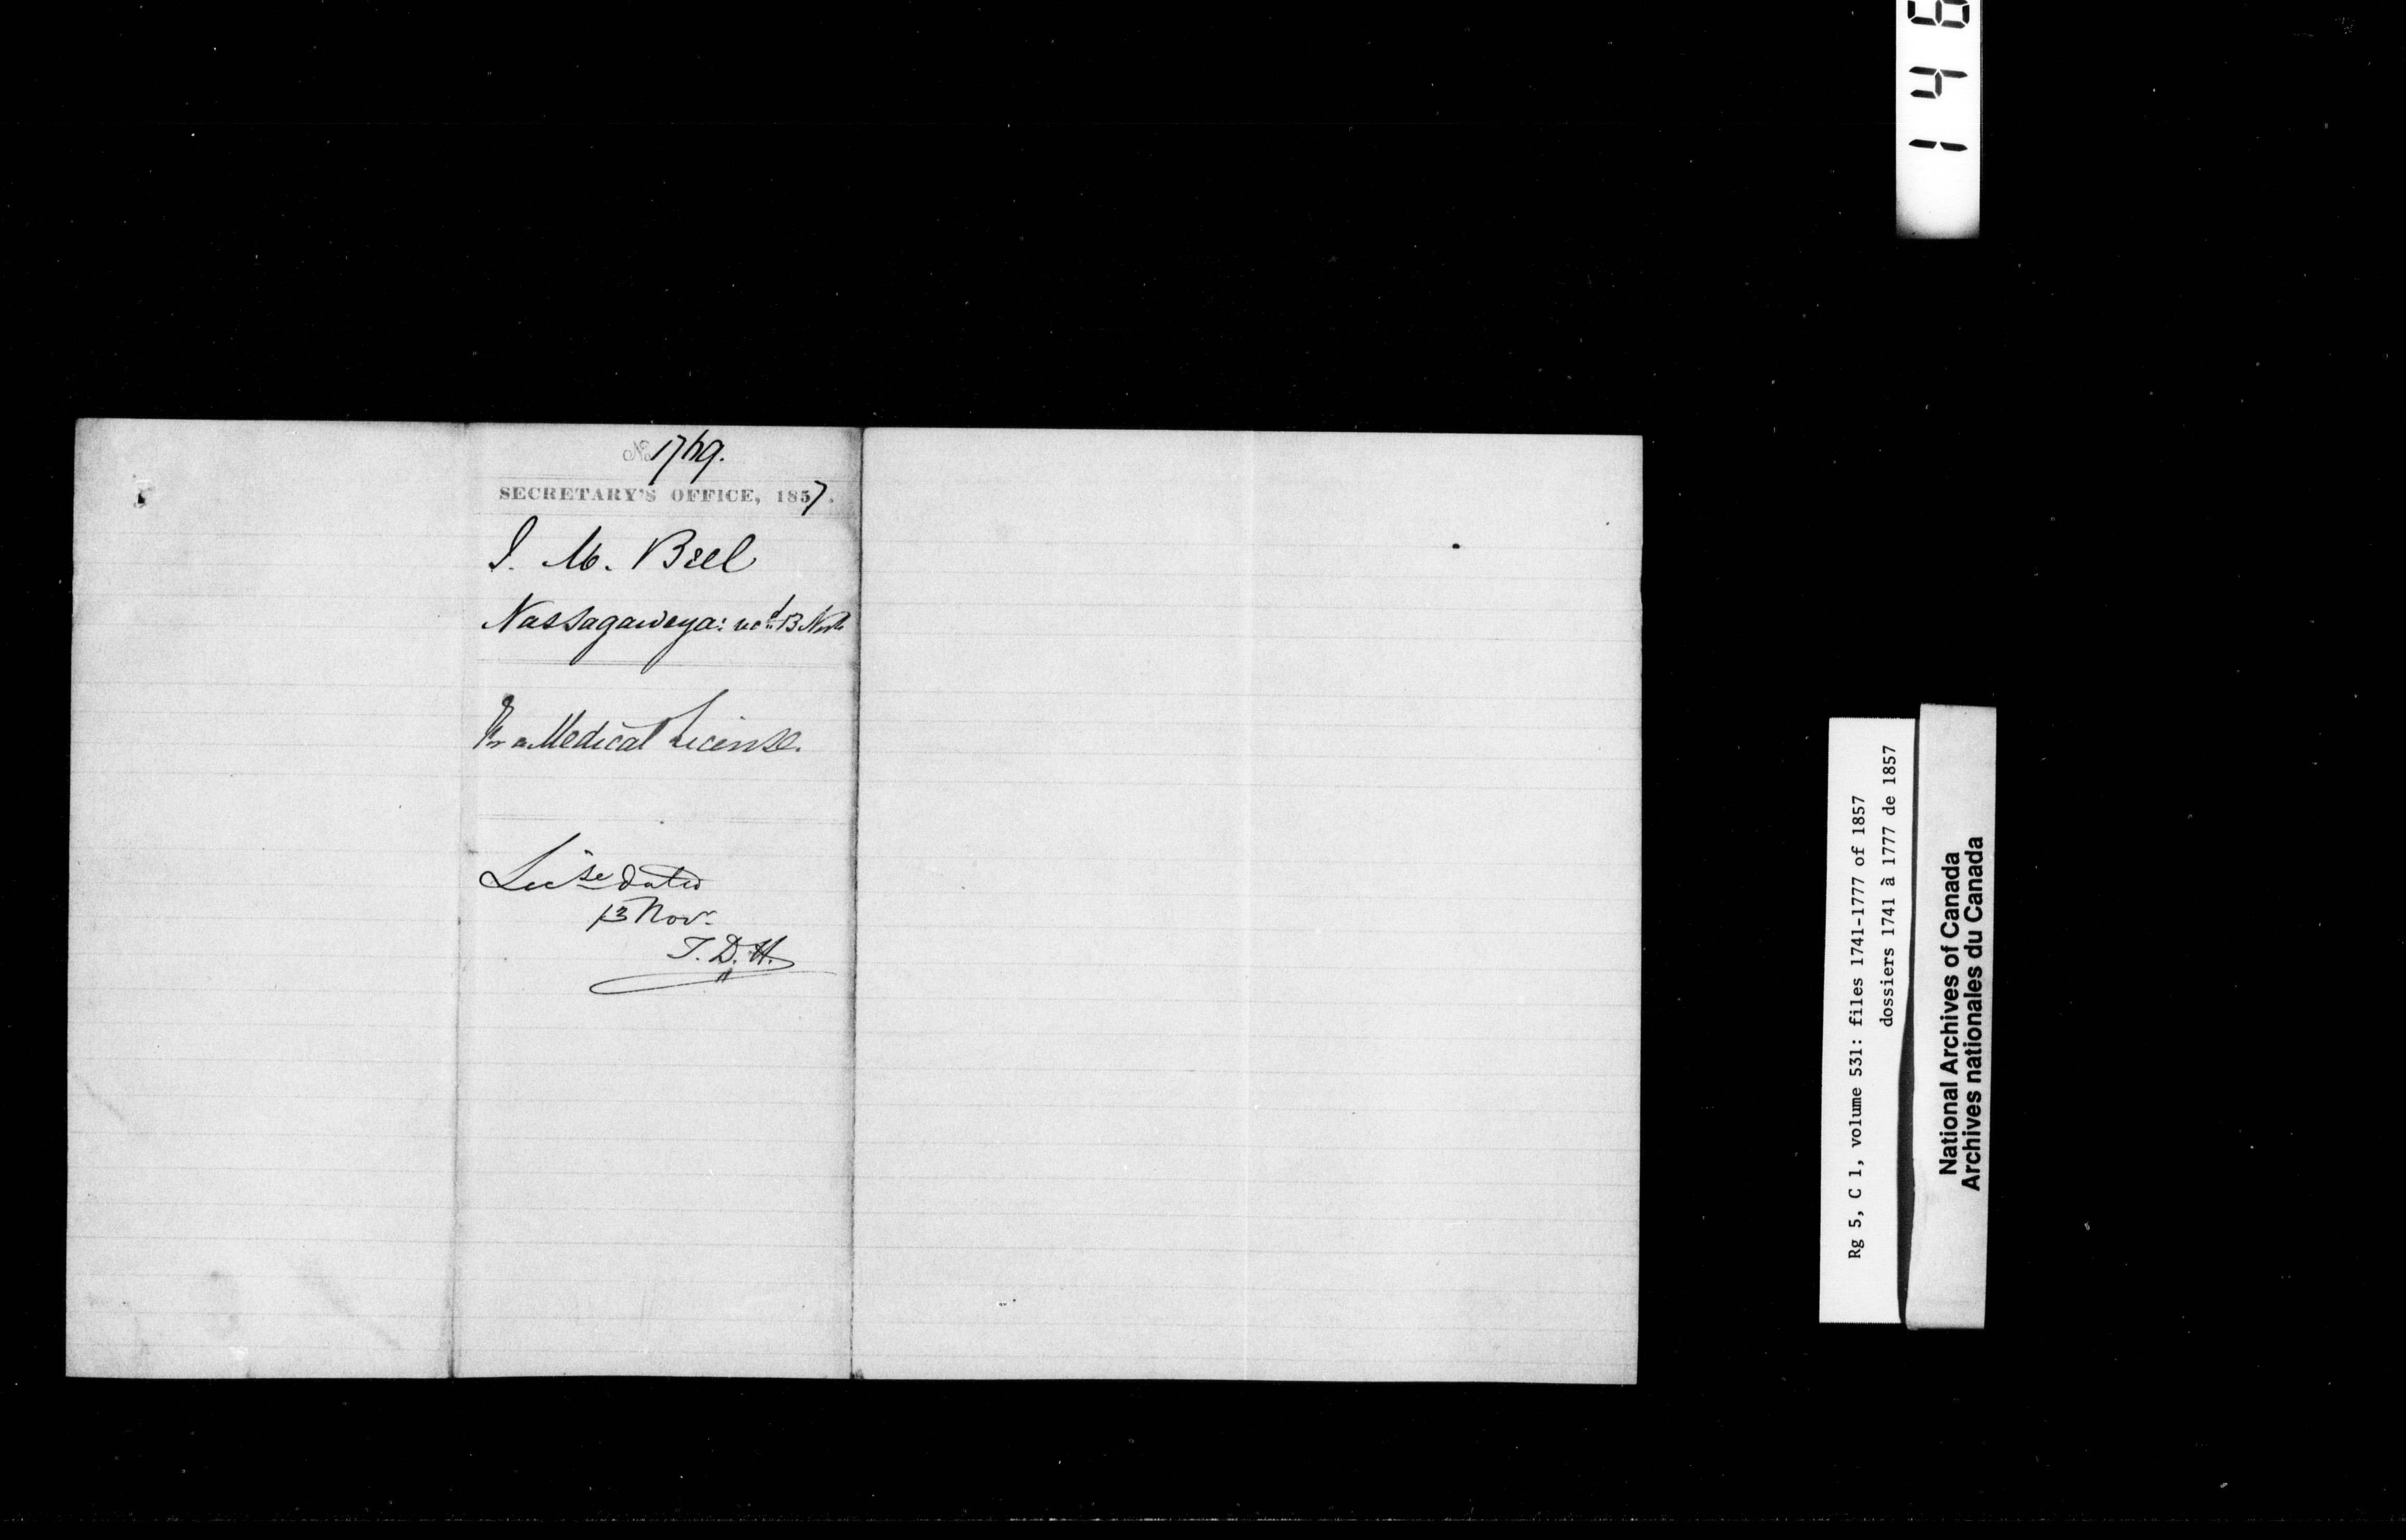 No. 1749.
SECRETARY'S OFFICE, 1857.
J. M. Bell
Nassagaweya: recd 13 Nov
For a Medical License.
Licse dated
13 Novr
T. D. H.
146
Rg 5, C 1, volume 531: files 1741-1777 of 1857
dossiers 1741 à 1777 de 1857
National Archives of Canada
Archives nationales du Canada